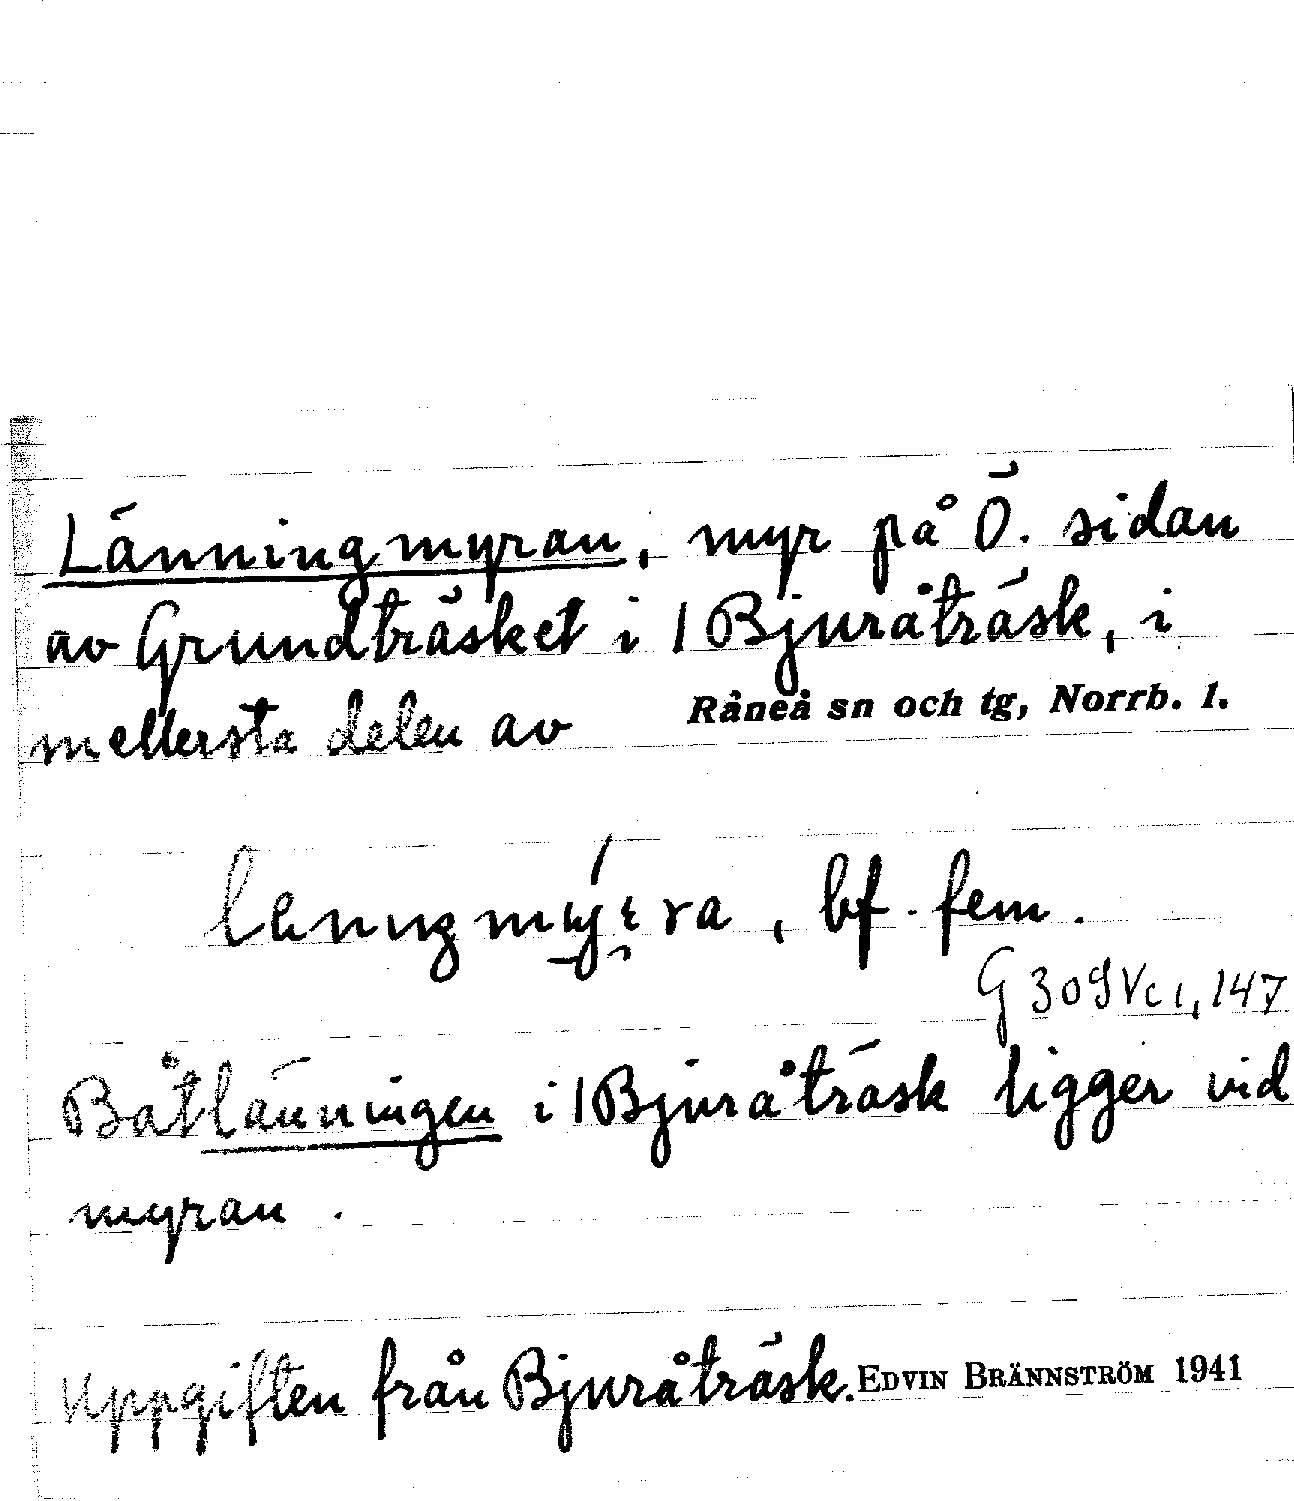 Länningmyran, myr på Ö. sidan
av Grundträsket i / Bjuråträsk, i
mellersta delen av Råneå sn och tg, Norrb. l.
bf. fem.
G 309 Vc 1, 147
Båtlänningen i / Bjuråträsk ligger vid
myran.
Uppgiften från Bjuråträsk. EDVIN BRÄNNSTRÖM 1941